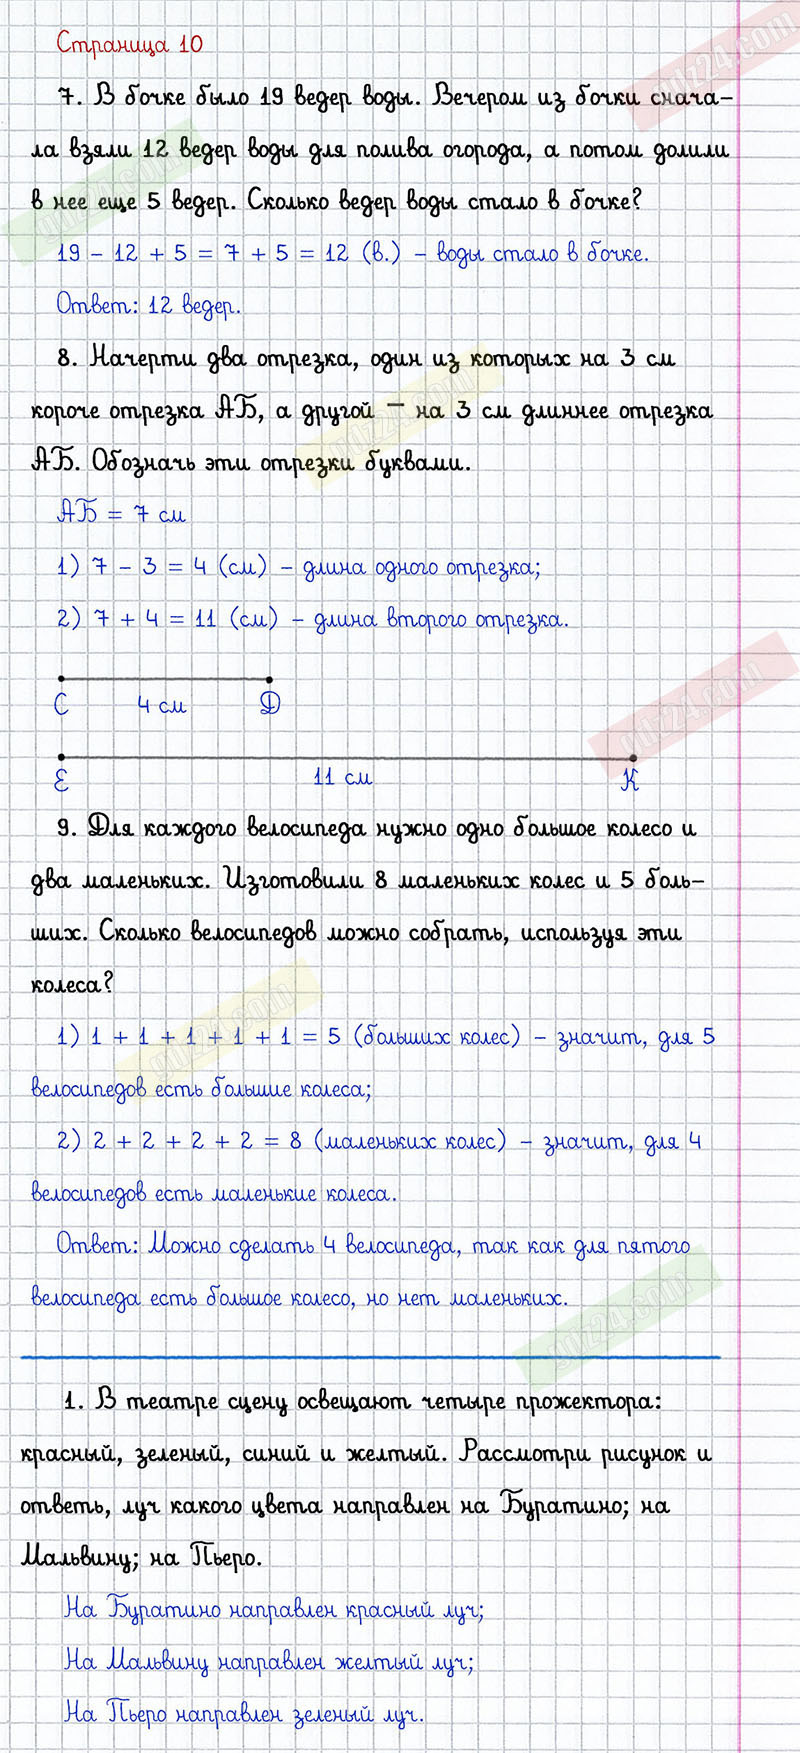 Страница 10
7. В бочке было 19 ведер воды. Вечером из бочки снача-
ла взяли 12 ведер воды для полива огорода, а потом долили
в нее еще 5 ведер. Сколько ведер воды стало в бочке?
19 - 12 + 5 = 7 + 5 = 12 (в.) - воды стало в бочке.
Ответ: 12 ведер.
8. Начерти два отрезка, один из которых на 3 см
короче отрезка АБ, а другой – на 3 см длиннее отрезка
АБ. Обозначь эти отрезки буквами.
АБ = 7 см
1) 7 - 3 = 4 (см) - длина одного отрезка;
2) 7 + 4 = 11 (см) - длина второго отрезка.
С 4 см Д
Е 11 см К
9. Для каждого велосипеда нужно одно большое колесо и
два маленьких. Изготовили 8 маленьких колес и 5 боль-
ших. Сколько велосипедов можно собрать, используя эти
колеса?
1) 1 + 1 + 1 + 1 + 1 = 5 (больших колес) - значит, для 5
велосипедов есть большие колеса;
2) 2 + 2 + 2 + 2 = 8 (маленьких колес) - значит, для 4
велосипедов есть маленькие колеса.
Ответ: Можно сделать 4 велосипеда, так как для пятого
велосипеда есть большое колесо, но нет маленьких.
1. В театре сцену освещают четыре прожектора:
красный, зеленый, синий и желтый. Рассмотри рисунок и
ответь, луч какого цвета направлен на Буратино; на
Мальвину; на Пьеро.
На Буратино направлен красный луч;
На Мальвину направлен желтый луч;
На Пьеро направлен зеленый луч.
gdz24.com
gdz24.com
gdz24.com
gdz24.com
gdz24.com
gdz24.com